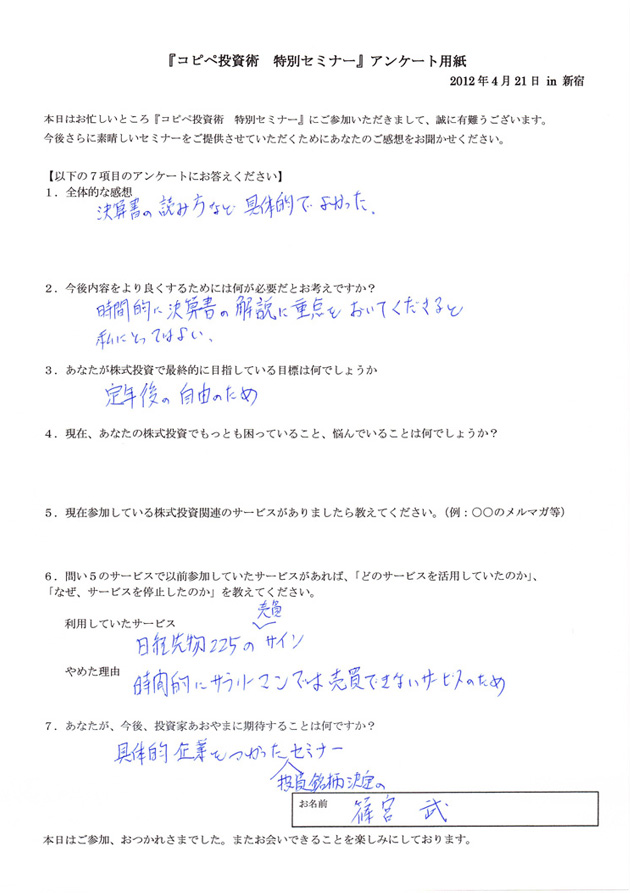 『コピペ投資術　特別セミナー』アンケート用紙
2012年4月21日 in 新宿
本日はお忙しいところ『コピペ投資術　特別セミナー』にご参加いただきまして、誠に有難うございます。
今後さらに素晴しいセミナーをご提供させていただくためにあなたのご感想をお聞かせください。
【以下の7項目のアンケートにお答えください】
1．全体的な感想
決算書の読み方など具体的でよかった．
2．今後内容をより良くするためには何が必要だとお考えですか？
時間的に決算書の解説に重点をおいてくださると
私にとってはよい．
3．あなたが株式投資で最終的に目指している目標は何でしょうか
定年後の自由のため
4．現在、あなたの株式投資でもっとも困っていること、悩んでいることは何でしょうか？
5．現在参加している株式投資関連のサービスがありましたら教えてください。（例：〇〇のメルマガ等）
6．問い5のサービスで以前参加していたサービスがあれば、「どのサービスを活用していたのか」、
「なぜ、サービスを停止したのか」を教えてください。
利用していたサービス
売買
日経先物225のサイン
やめた理由
時間的にサラリーマンでは売買できないサービスのため
7．あなたが、今後、投資家あおやまに期待することは何ですか？
具体的企業をつかったセミナー
投資銘柄決定の
お名前
篠宮 武
本日はご参加、おつかれさまでした。またお会いできることを楽しみにしております。